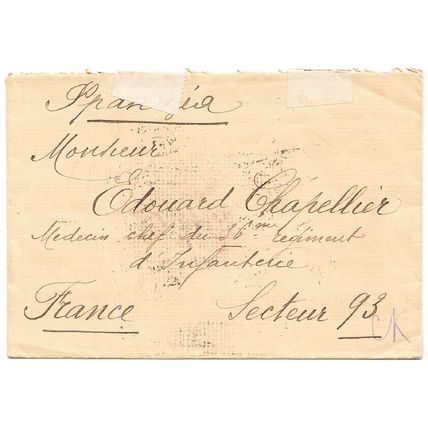 Monsieur
Edouard Chapellier
Medecin chef du 36eme régiment
d'Infanterie
France Secteur 93
CK